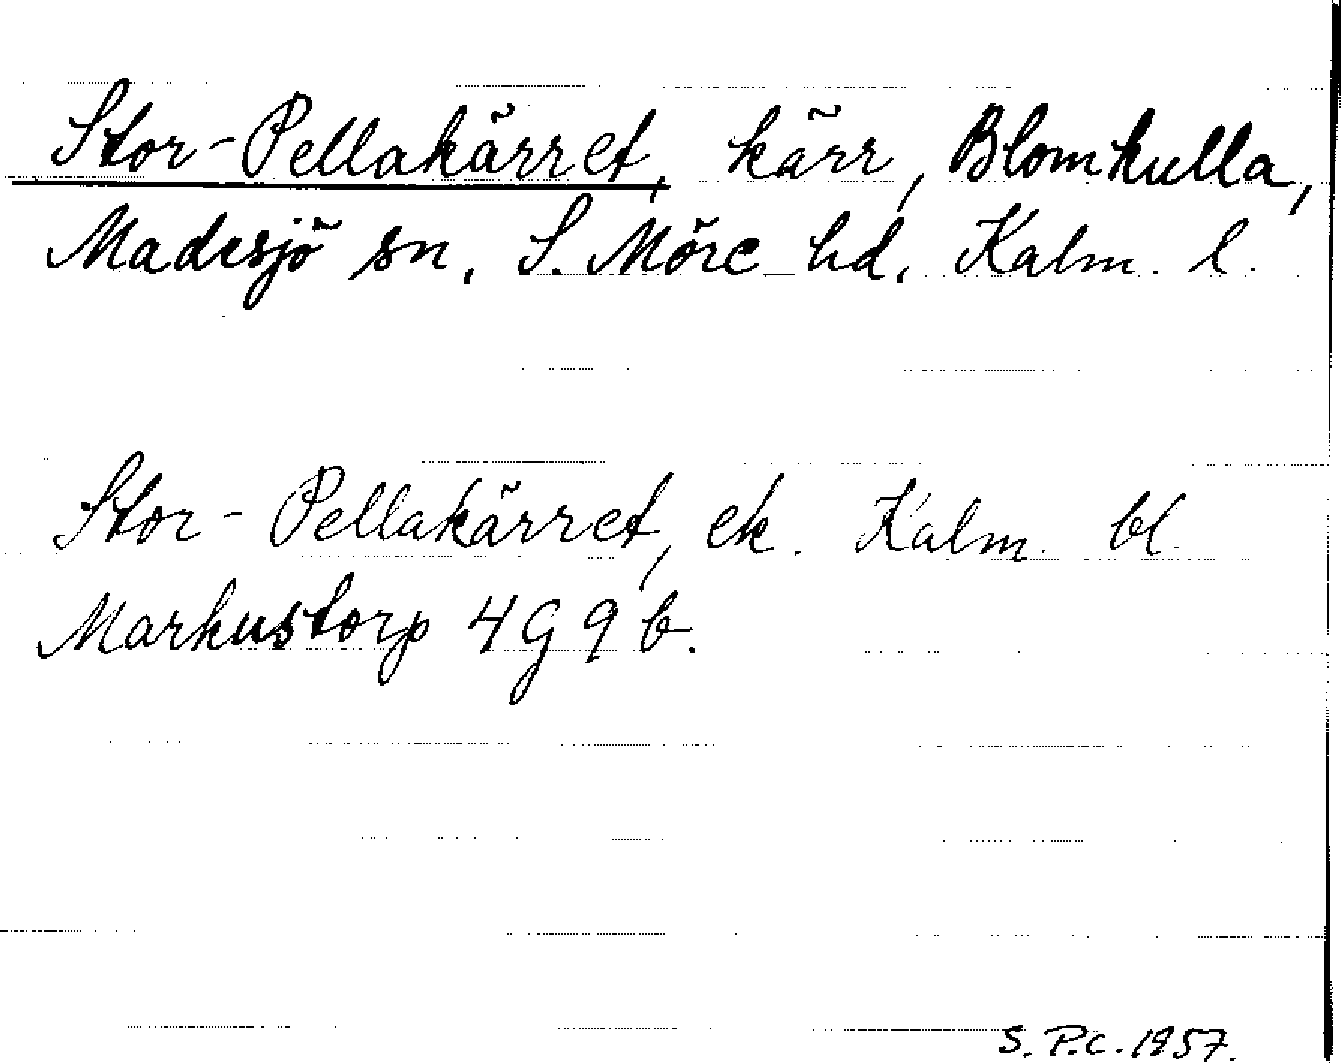 Stor-Pellakärret, kärr, Blomkulla,
Madesjö sn, S. Möre hd, Kalm. l.
Stor-Pellakärret, ek. Kalm. bl.
Markustorp 4G9b.
S. P.C. 1957.